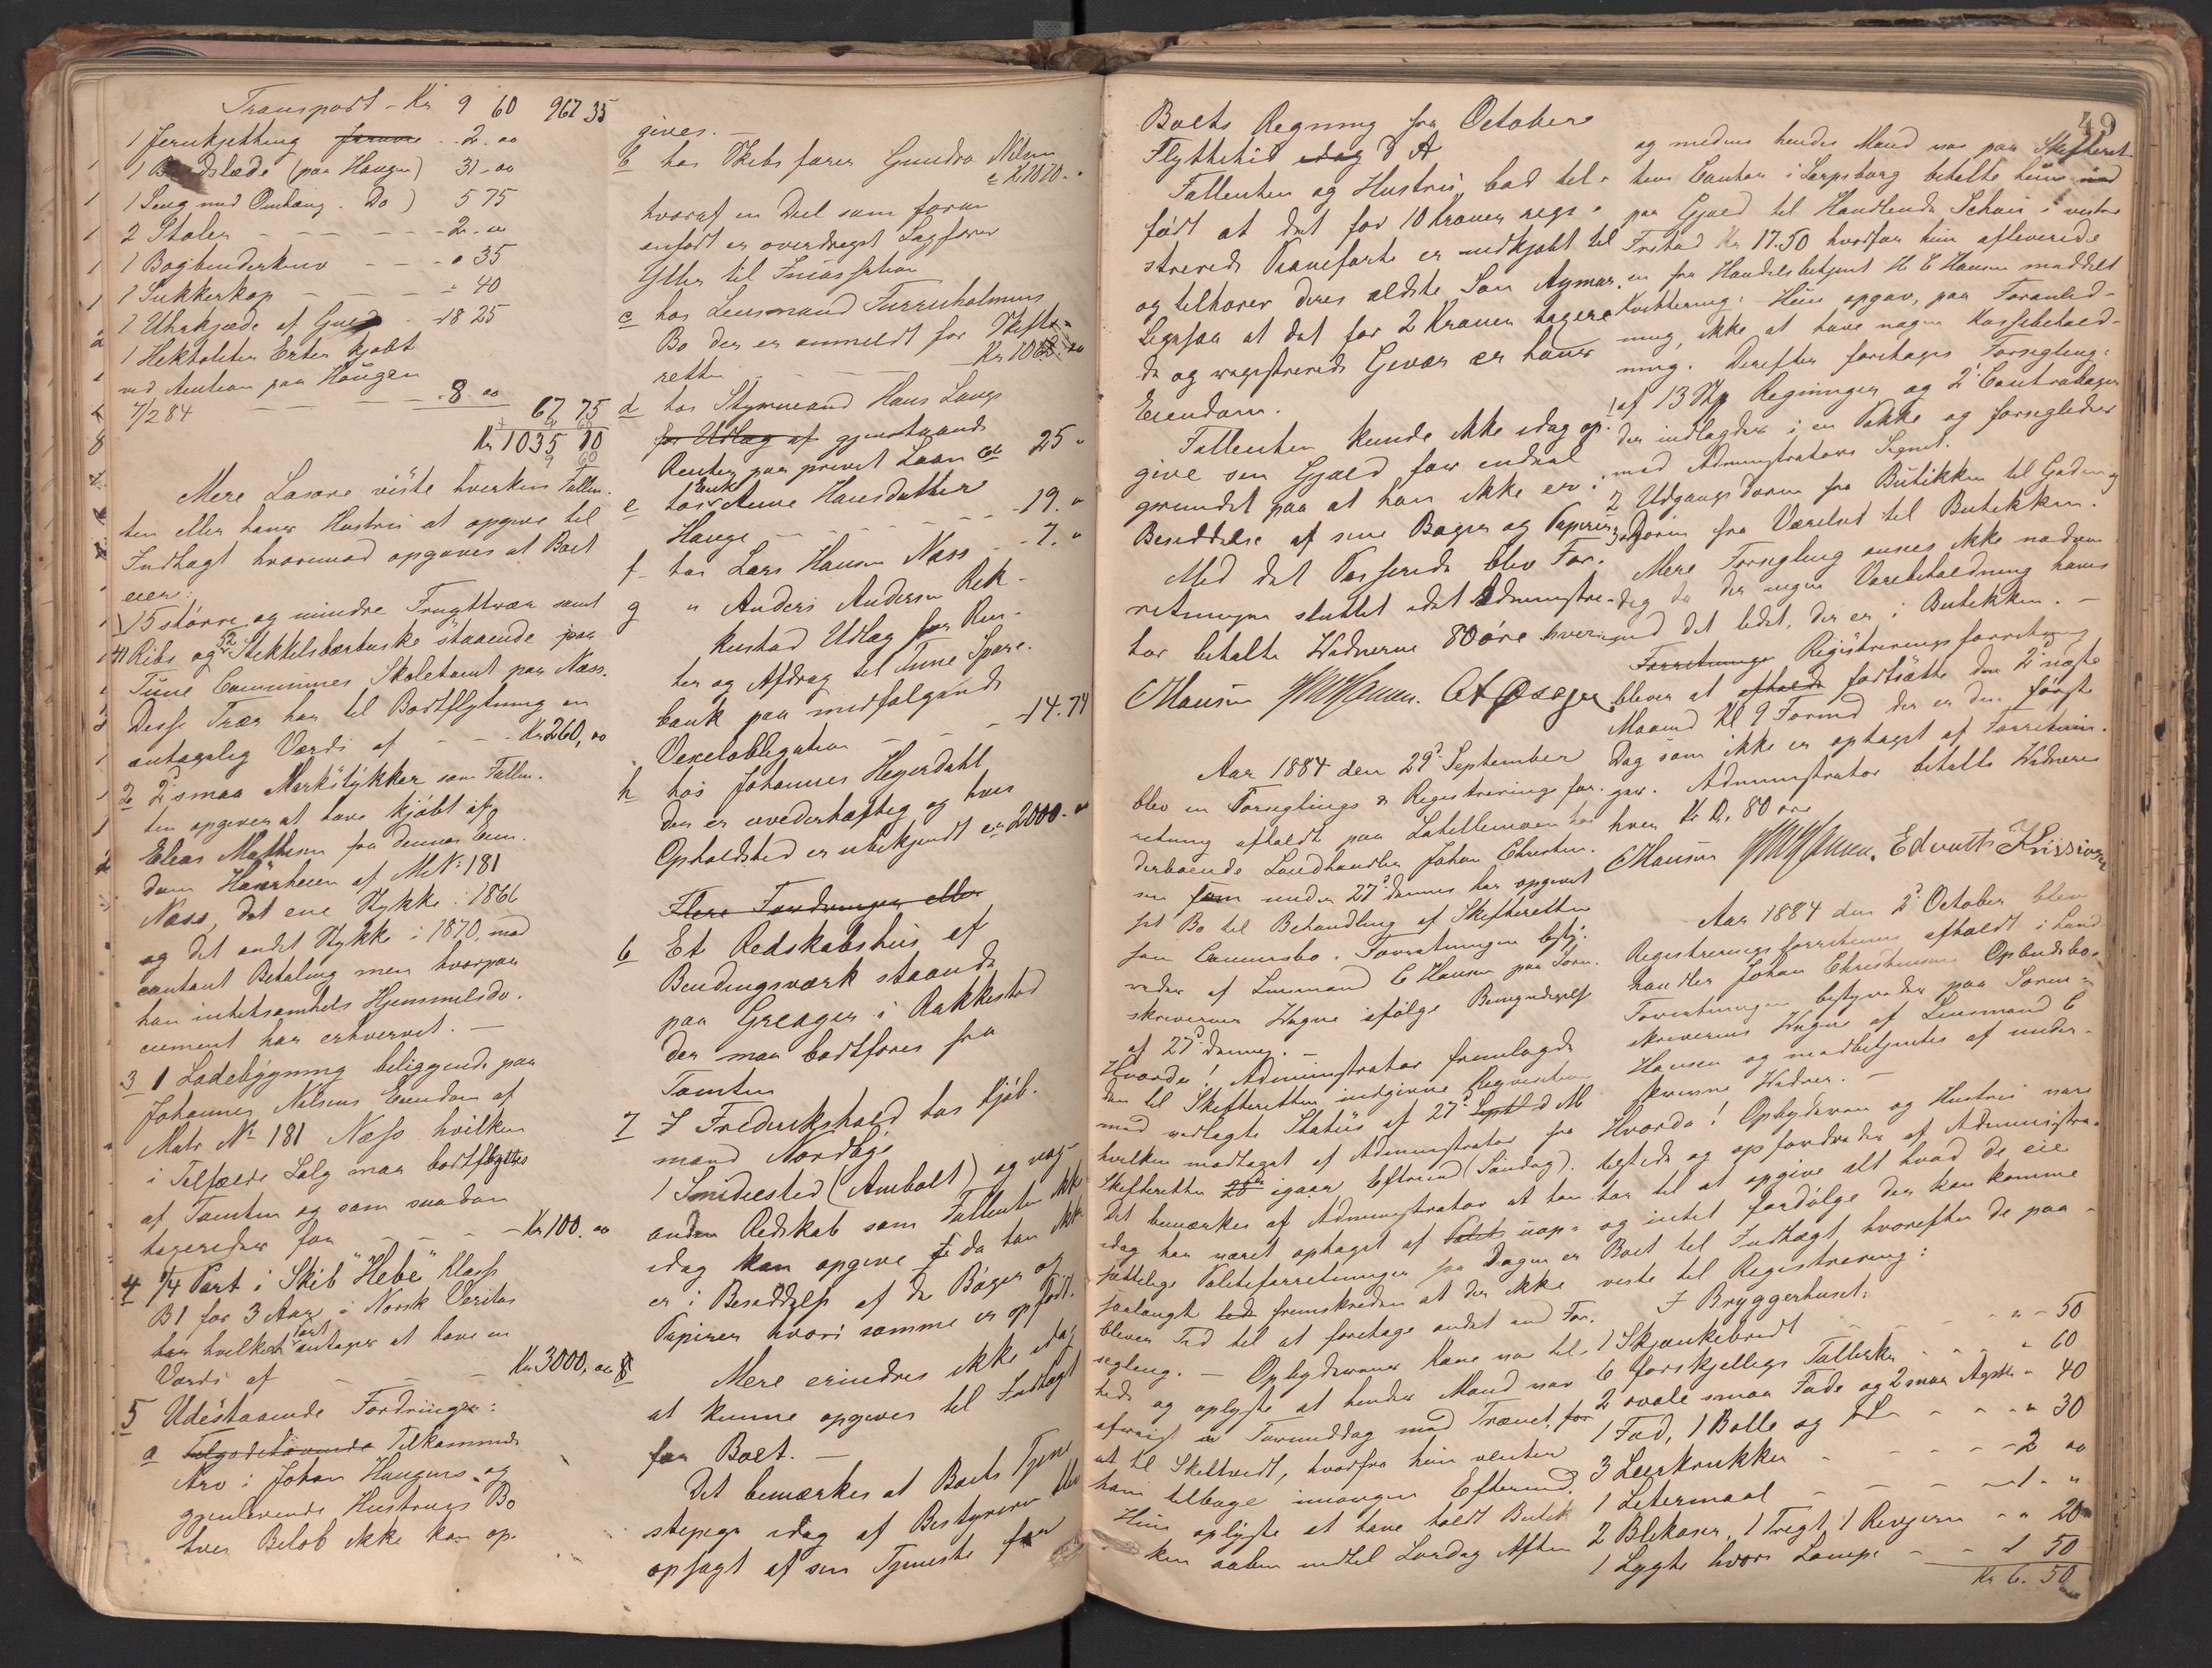 Transport - Kr 9 60 967 35
1 Jernkjetting ~~Jerovne~~ 2.00
1 B dslæde (paa Haugen) 31-00
1 Seng med Omhæng. Do) 5 75
2 Stoler - - - - 2-00
1 Bogbinderkniv - - - " 35
1 Sukkerkop - - " 40
1 Uhrkjæde af Guld - 18 25
1 Hektoliter Erter kjøbt
ved Auction paa Haugen
7/2 84 - - - 8 00
67 75
Kr 1035 10
9 60
Mere Løsøre viste hverken Fallen-
ten eller hans Hustru at opgive til
Indtægt hvorimod opgaves at Boet
eier:
1 15 større og mindre Frugttrær samt
41 Ribs og 52 Stikkelsbærbuske staaende paa
Tune Communes Skoletomt paa Næss.
Disse Trær har til Bortflytning en
antagelig Værdi af - - - Kr 260,00
2 2de smaa Markstykker som Fallen-
ten opgiver at have kjøbt af
Elias Mathesen fra dennes Eien-
dom Hauerheien af M.N. 181
Næss, det ene Stykke i 1866
og det andet Stykke i 1870, mod
contant Betaling men hvorpaa
han intetsomhelst Hjemmelsdo-
cument har erhvervet. -
3 1 Ladebygning beliggende paa
Johannes Nilsens Eiendom af
Matr No 181 Næss hvilken
i Tilfælde Salg maa bortflyttes
af Tomten og som saadan
tageredes for - - - Kr 100.00
4 1/4 Part i Skib "Hebe" Klasse
B1 for 3 Aar i Norsk Veritas
~~han~~ hvilken Part antages at have en
Værdi af - - - Kr 3000,00
5 Udestaaende Fordringer:
a ~~Tilgodehavende~~ Tilkommende
Arv i Johan Haugens og
gjenlevende Hustrues Bo
hvis Beløb ikke kan op-
gives. -
b hos Skibsfører Gundro Nilsen
1070. "
hvoraf en Deel som foran
anført er overdraget Sagfører
Yller til Incassation
c hos Lensmand Furuholmens
Bo der er anmeldt for Skifte-
retten - - - Kr 1068.00
d hos Styrmand Hans Lunge
~~for Udlæg af~~ gjenstaaende
Renter paa privat Laan ca 25 "
e hos Enke Anne Hansdatter
Hauge - - - - 19. "
f hos Lars Hansen Næss - - 7. "
g " Anders Andersen Rek-
kestad Udlæg for Ren-
ter og Afdrag til Tune Spare-
bank paa medfølgende
Vexelobligation - - - 14.74
h hos Johannes Heyerdahl
der er uvederhæftig og hvis
Opholdsted er ubekjendt ca 2000. "
~~Flere Fordringer eller~~
6 Et Redskabshus af
Bindingsværk staaende
paa Greager i Rakkestad
der maa bortføres fra
Tomten
7 I Frederikshald hos Kjøb-
mand Nordby
1 Smidiested (Ambolt) og nog-
anden Redskab som Fallenten ikke
idag kan opgive da han ikke
er i Besiddelse af de Bøger og
Papirer hvori samme er opført.
8 Mere erindres ikke idag
at kunne opgives til Indtægt
for Boet. -
Det bemærkes at Boets Tjene
stepige idag af Bestyreren blev
opsagt af sin Tjeneste for
49
Boets Regning fra October
Flyttetid ~~idag~~ d A
Fallenten og Hustru bad til-
ført at det for 10 kroner regi-
strerede Pianoforte er indkjøbt til
og tilhører deres ældste Søn Aymar.
Ligesaa at det for 2 Kroner tagere-
de og registrerede Gevær er hans
Eiendom.
Fallenten kunde ikke idag op-
give sin Gjæld for endeel
grundet paa at han ikke er i
Besiddelse af sine Bøger og Papirer.
Med det Passerede blev For-
retningen sluttet idet Administra-
tor betalte Vidnerne 80 øre hver.
CHansen
Aar 1884 den 29de September
blev en Forseglings & Registreringsfor-
retning afholdt paa Latellemoen hos
derboende Landhandler Johan Christen-
sen som under 27de dennes har opgivet
sit Bo til Behandling af Skifteretten
som Concursbo. Forretningen besty-
redes af Lensmand C Hansen paa Soren-
skriverens Vegne ifølge Bemyndigelse
af 27de dennes. -
Hvorda! Administrator fremlagde
den til Skifteretten indgivne Reqvisition
med vedlagte Status af 27de ~~Septb~~ d M
hvilken modtaget af Administrator fra
Skifteretten ~~28de~~ igaar Eftermd (Søndag).
Det bemærkes af Administrator at han
idag har været optaget af ~~Politi~~ uop-
sættelige Politiforretninger saa Dagen er
saalangt ~~led~~ fremskreden at der ikke
bliver Tid til at foretage andet end For-
segling. - Opbyderens Kone var til-
stede og oplyste at hendes Mand var
afreist Formiddag med Trænet, for
at til Skjeltvedt, hvorfra hun venter
ham tilbage imorgen Eftermd.
Hun oplyste at have holdt Butik-
ken aaben indtil Lørdag Aften
og medens hendes Mand var paa Skifteret-
tens Contor i Sarpsborg betalte hun ~~ned~~
paa Gjæld til Handlende Schou i vestre
Frstad Kr 17.50 hvorfor hun afleverede
en fra Handelsbetjent H E Hansen meddelt
Kvittering: Hun opgav, paa Foranled-
ning, ikke at have nogen Kassebehold-
ning. Derefter foretages Forsegling:
1 af 13 Stk Regninger og 2de Contrabøger
der indlagdes i en Pakke og forsegledes
med Administrators Signet.
2 Udgangsdøren fra Butikken til Gaden og
3 Døren fra Værelset til Butikken.
Mere Forsegling ansees ikke nødven-
dig da der ingen Varebeholdning haves
uden det lidet, der er i Butikken. -
~~Forretninge~~ Registreringsforretning
bliver at ~~afholde~~ fortsætte den 2de næste
Maaned Kl 9 Formd der er den første
Dag som ikke er optaget af Forretnin-
ger. Administrator betalte Vidnerne
hver Kr 0,80 øre
CHansen
Aar 1884 den 2de October blev
Registreringsforretning afholdt i Land-
handler Johan Christensens Opbudsbo.
Forretningen bestyredes paa Soren-
skriverens Vegne af Lensmand C
Hansen og medbetjentes af under-
skrevne Vidner. -
Hvorda! Opbyderen og Hustru vare
tilstede og opfordredes af Administra-
tor til at opgive alt hvad de eie
og intet fordølge der kan komme
Boet til Indtægt, hvorefter de paa-
viste til Registrering:
I Bryggerhuset:
1 Skjænkebredt - - - " 50
6 forskjellige Tallerker - - " 60
2 ovale smaa Fade og 2 smaa Asjetter " 40
1 Fad, 1 Bolle og - - - " 30
3 Leerkrukker - - - - 2 00
1 Litermaal - - - - 1. "
2 Blikøser, 1 Tregt 1 Rivjern - " 20
1 Lygte hvori Lampe - - 1 50
Kr 6. 50